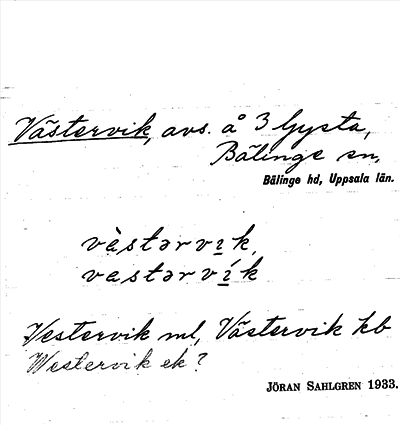 Västervik, avs. å 3 Gysta,
Bälinge sn,
Bälinge hd, Uppsala län.
vèstərvɪk,
vestərvɪ́k
Vestervik ml, Västervik kb
Westervik ek?
JÖRAN SAHLGREN 1933.